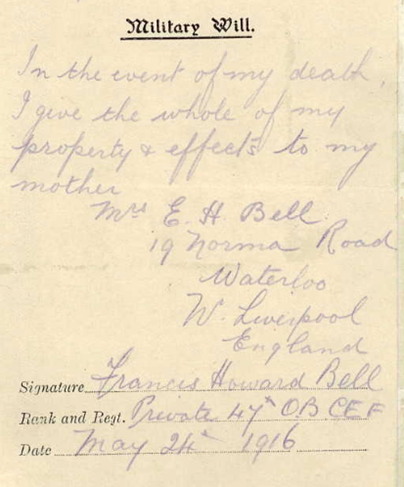 Military Will.
In the event of my death,
I give the whole of my
property & effects to my
mother
Mrs E. H. Bell
19 Norma Road
Waterloo
W. Liverpool
England
Signature Francis Howard Bell
Rank and Regt. Private 47th O B C E F
Date May 24th 1916